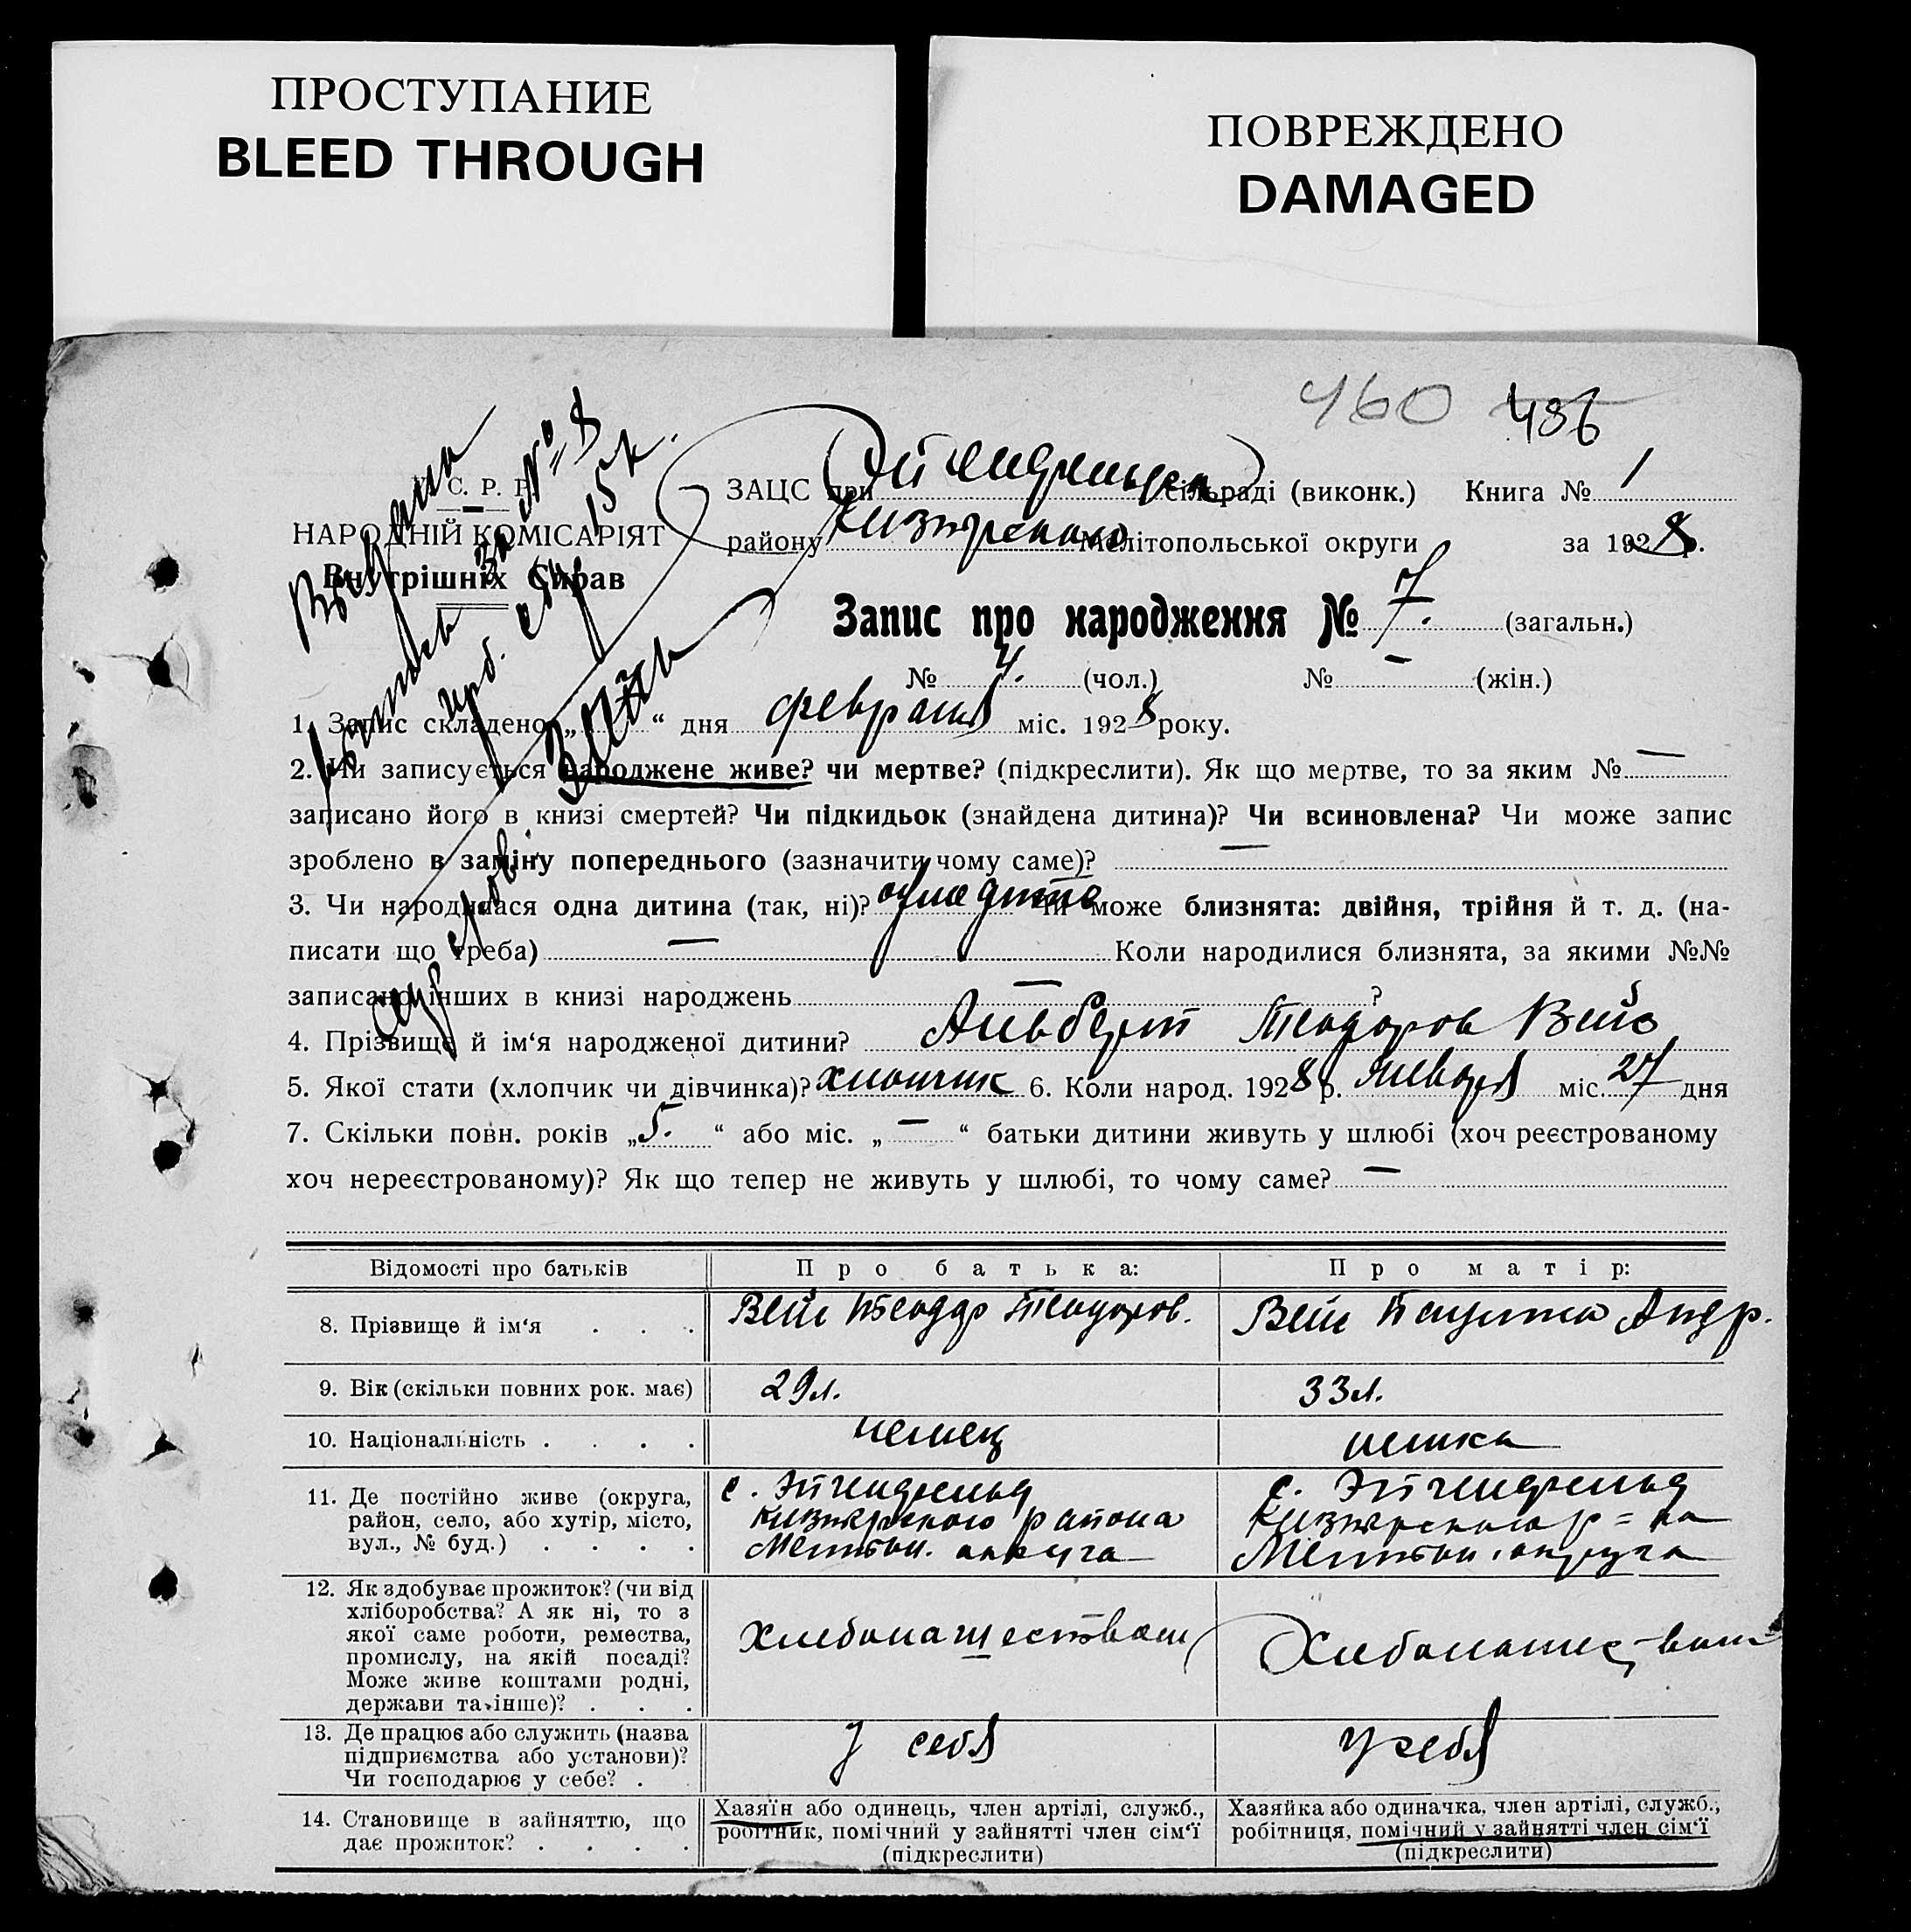 ПРОСТУПАНИЕ
BLEED THROUGH
ПОВРЕЖДЕНО
DAMAGED
460 486
С. Р. Р.
НАРОДНІЙ КОМІСАРІЯТ
Внутрішніх Справ
Выдана
№ 8
ЗАЦС при сільраді (виконк.) Книга № 1
району Мелітопольської округи за 1928 р.
Запис про народження № 7. (загальн.)
№ 4. (чол.) № — (жін.)
1. Запис складено „ “ дня февраля міс. 1928 року.
2. Чи записується народжене живе? чи мертве? (підкреслити). Як що мертве, то за яким № —
записано його в книзі смертей? Чи підкидьок (знайдена дитина)? Чи всиновлена? Чи може запис
зроблено в заміну попереднього (зазначити чому саме)? —
3. Чи народилася одна дитина (так, ні)? одно дитя Чи може близнята: двійня, трійня й т. д. (на-
писати що треба) — Коли народилися близнята, за якими №№
записано інших в книзі народжень — ?
4. Прізвище й ім‘я народженої дитини? Альберт Теодоров Вейс
5. Якої стати (хлопчик чи дівчинка)? хлопчик 6. Коли народ. 1928 р. января міс. 27 дня
7. Скільки повн. років „5.“ або міс. „—“ батьки дитини живуть у шлюбі (хоч реєстрованому
хоч нереєстрованому)? Як що тепер не живуть у шлюбі, то чому саме? —
Відомості про батьків Про батька: Про матір:
8. Прізвище й ім‘я . . . Вейс Теодор Теодоров. Вейс Паулина Андр.
9. Вік (скільки повних рок. має) 29 л. 33 л.
10. Національність . . . . немец немка
11. Де постійно живе (округа,
район, село, або хутір, місто,
вул., № буд.) . . . .
с. Эйгенфельд
Кизиярского района
Мелитоп. округа
с. Эйгенфельд
Кизиярского р=на
Мелитоп. округа
12. Як здобуває прожиток? (чи від
хліборобства? А як ні, то з
якої саме роботи, ремества,
промислу, на якій посаді?
Може живе коштами родні,
держави та інше)? . . .
Хлебопашеством
Хлебопашеством
13. Де працює або служить (назва
підприємства або установи)?
Чи господарює у себе? .
у себя
у себя
14. Становище в зайняттю, що
дає прожиток? . . . .
Хазяїн або одинець, член артілі, служб.,
робітник, помічний у зайнятті член сім‘ї
(підкреслити)
Хазяйка або одиначка, член артілі, служб.,
робітниця, помічний у зайнятті член сім‘ї
(підкреслити)